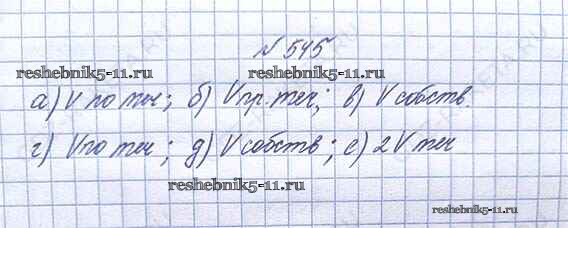 № 545
reshebnik5-11.ru reshebnik5-11.ru
а) V по теч; б) Vпр. теч; в) V собств.
г) Vпо теч; д) V собств; е) 2 V теч
reshebnik5-11.ru reshebnik5-11.ru